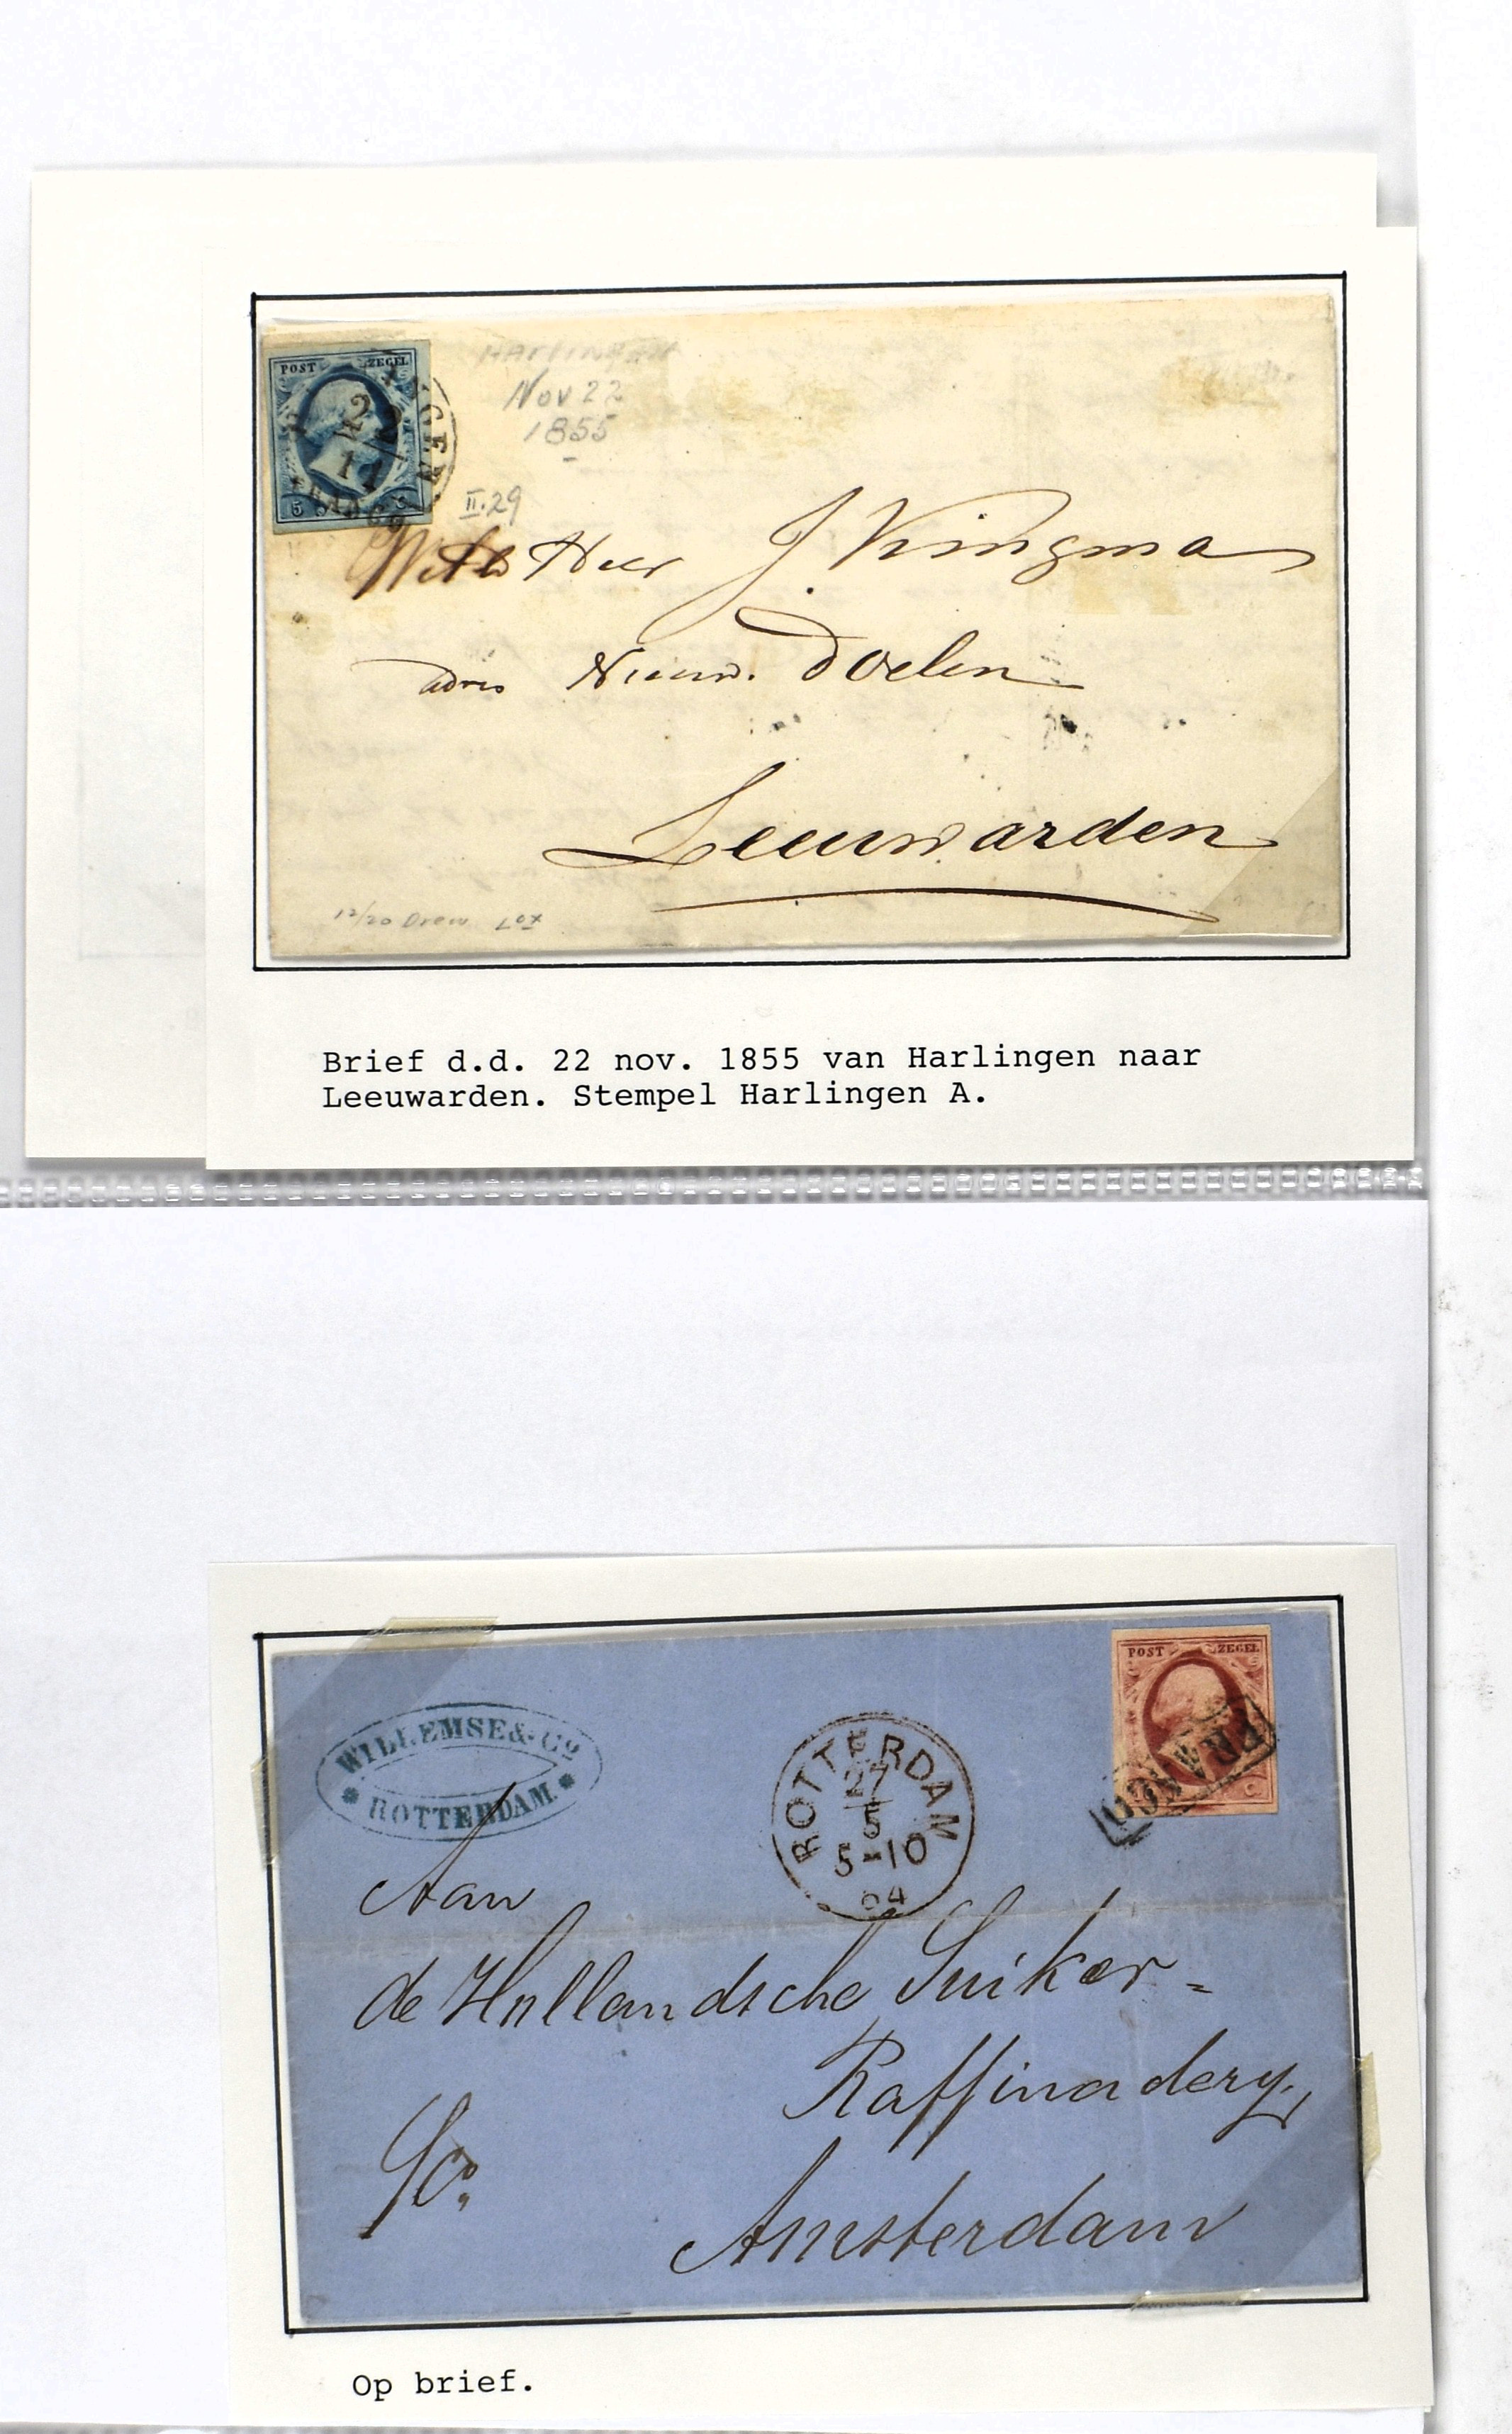 POST ZEGEL
5 C
GEN
Harlingen
Nov 22
1855
II.29
Heer J. Kingma
adres Nieuw. Doelen
Leeuwarden
12/20 Drew Lot
Brief d.d. 22 nov. 1855 van Harlingen naar
Leeuwarden. Stempel Harlingen A.
POST ZEGEL
C
FRANCO
WILLEMSE & Co
ROTTERDAM
ROTTERDAM
27
5
5-10
64
Aan
de Hollandsche Suiker=
Raffinadery,
Amsterdam
Op brief.